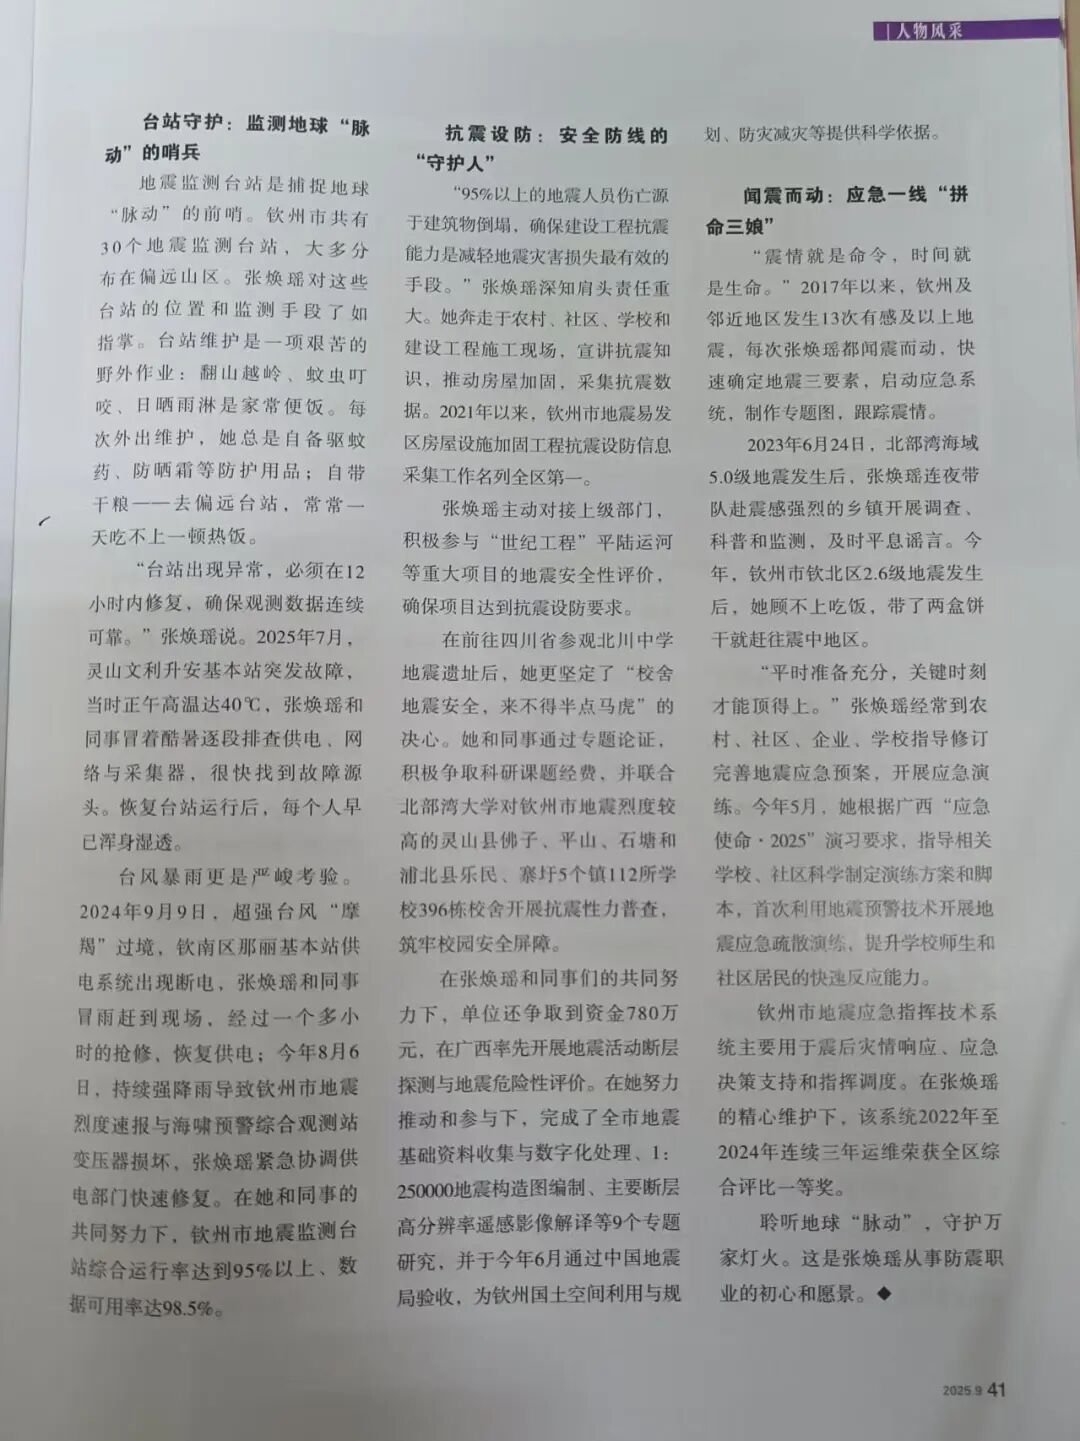 人物风采
台站守护：监测地球“脉
动”的哨兵
地震监测台站是捕捉地球
“脉动”的前哨。钦州市共有
30个地震监测台站，大多分
布在偏远山区。张焕瑶对这些
台站的位置和监测手段了如
指掌。台站维护是一项艰苦的
野外作业：翻山越岭、蚊虫叮
咬、日晒雨淋是家常便饭。每
次外出维护，她总是自备驱蚊
药、防晒霜等防护用品；自带
干粮——去偏远台站，常常一
天吃不上一顿热饭。
“台站出现异常，必须在12
小时内修复，确保观测数据连续
可靠。”张焕瑶说。2025年7月，
灵山文利升安基本站突发故障，
当时正午高温达40℃，张焕瑶和
同事冒着酷暑逐段排查供电、网
络与采集器，很快找到故障源
头。恢复台站运行后，每个人早
已浑身湿透。
台风暴雨更是严峻考验。
2024年9月9日，超强台风“摩
羯”过境，钦南区那丽基本站供
电系统出现断电，张焕瑶和同事
冒雨赶到现场，经过一个多小
时的抢修，恢复供电；今年8月6
日，持续强降雨导致钦州市地震
烈度速报与海啸预警综合观测站
变压器损坏，张焕瑶紧急协调供
电部门快速修复。在她和同事的
共同努力下，钦州市地震监测台
站综合运行率达到95%以上、数
据可用率达98.5%。
抗震设防：安全防线的
“守护人”
“95%以上的地震人员伤亡源
于建筑物倒塌，确保建设工程抗震
能力是减轻地震灾害损失最有效的
手段。”张焕瑶深知肩头责任重
大。她奔走于农村、社区、学校和
建设工程施工现场，宣讲抗震知
识，推动房屋加固，采集抗震数
据。2021年以来，钦州市地震易发
区房屋设施加固工程抗震设防信息
采集工作名列全区第一。
张焕瑶主动对接上级部门，
积极参与“世纪工程”平陆运河
等重大项目的地震安全性评价，
确保项目达到抗震设防要求。
在前往四川省参观北川中学
地震遗址后，她更坚定了“校舍
地震安全，来不得半点马虎”的
决心。她和同事通过专题论证，
积极争取科研课题经费，并联合
北部湾大学对钦州市地震烈度较
高的灵山县佛子、平山、石塘和
浦北县乐民、寨圩5个镇112所学
校396栋校舍开展抗震性力普查，
筑牢校园安全屏障。
在张焕瑶和同事们的共同努
力下，单位还争取到资金780万
元，在广西率先开展地震活动断层
探测与地震危险性评价。在她努力
推动和参与下，完成了全市地震
基础资料收集与数字化处理、1：
250000地震构造图编制、主要断层
高分辨率遥感影像解译等9个专题
研究，并于今年6月通过中国地震
局验收，为钦州国土空间利用与规
划、防灾减灾等提供科学依据。
闻震而动：应急一线“拼
命三娘”
“震情就是命令，时间就
是生命。”2017年以来，钦州及
邻近地区发生13次有感及以上地
震，每次张焕瑶都闻震而动，快
速确定地震三要素，启动应急系
统，制作专题图，跟踪震情。
2023年6月24日，北部湾海域
5.0级地震发生后，张焕瑶连夜带
队赴震感强烈的乡镇开展调查、
科普和监测，及时平息谣言。今
年，钦州市钦北区2.6级地震发生
后，她顾不上吃饭，带了两盒饼
干就赶往震中地区。
“平时准备充分，关键时刻
才能顶得上。”张焕瑶经常到农
村、社区、企业、学校指导修订
完善地震应急预案，开展应急演
练。今年5月，她根据广西“应急
使命·2025”演习要求，指导相关
学校、社区科学制定演练方案和脚
本，首次利用地震预警技术开展地
震应急疏散演练，提升学校师生和
社区居民的快速反应能力。
钦州市地震应急指挥技术系
统主要用于震后灾情响应、应急
决策支持和指挥调度。在张焕瑶
的精心维护下，该系统2022年至
2024年连续三年运维荣获全区综
合评比一等奖。
聆听地球“脉动”，守护万
家灯火。这是张焕瑶从事防震职
业的初心和愿景。◆
2025.9 41